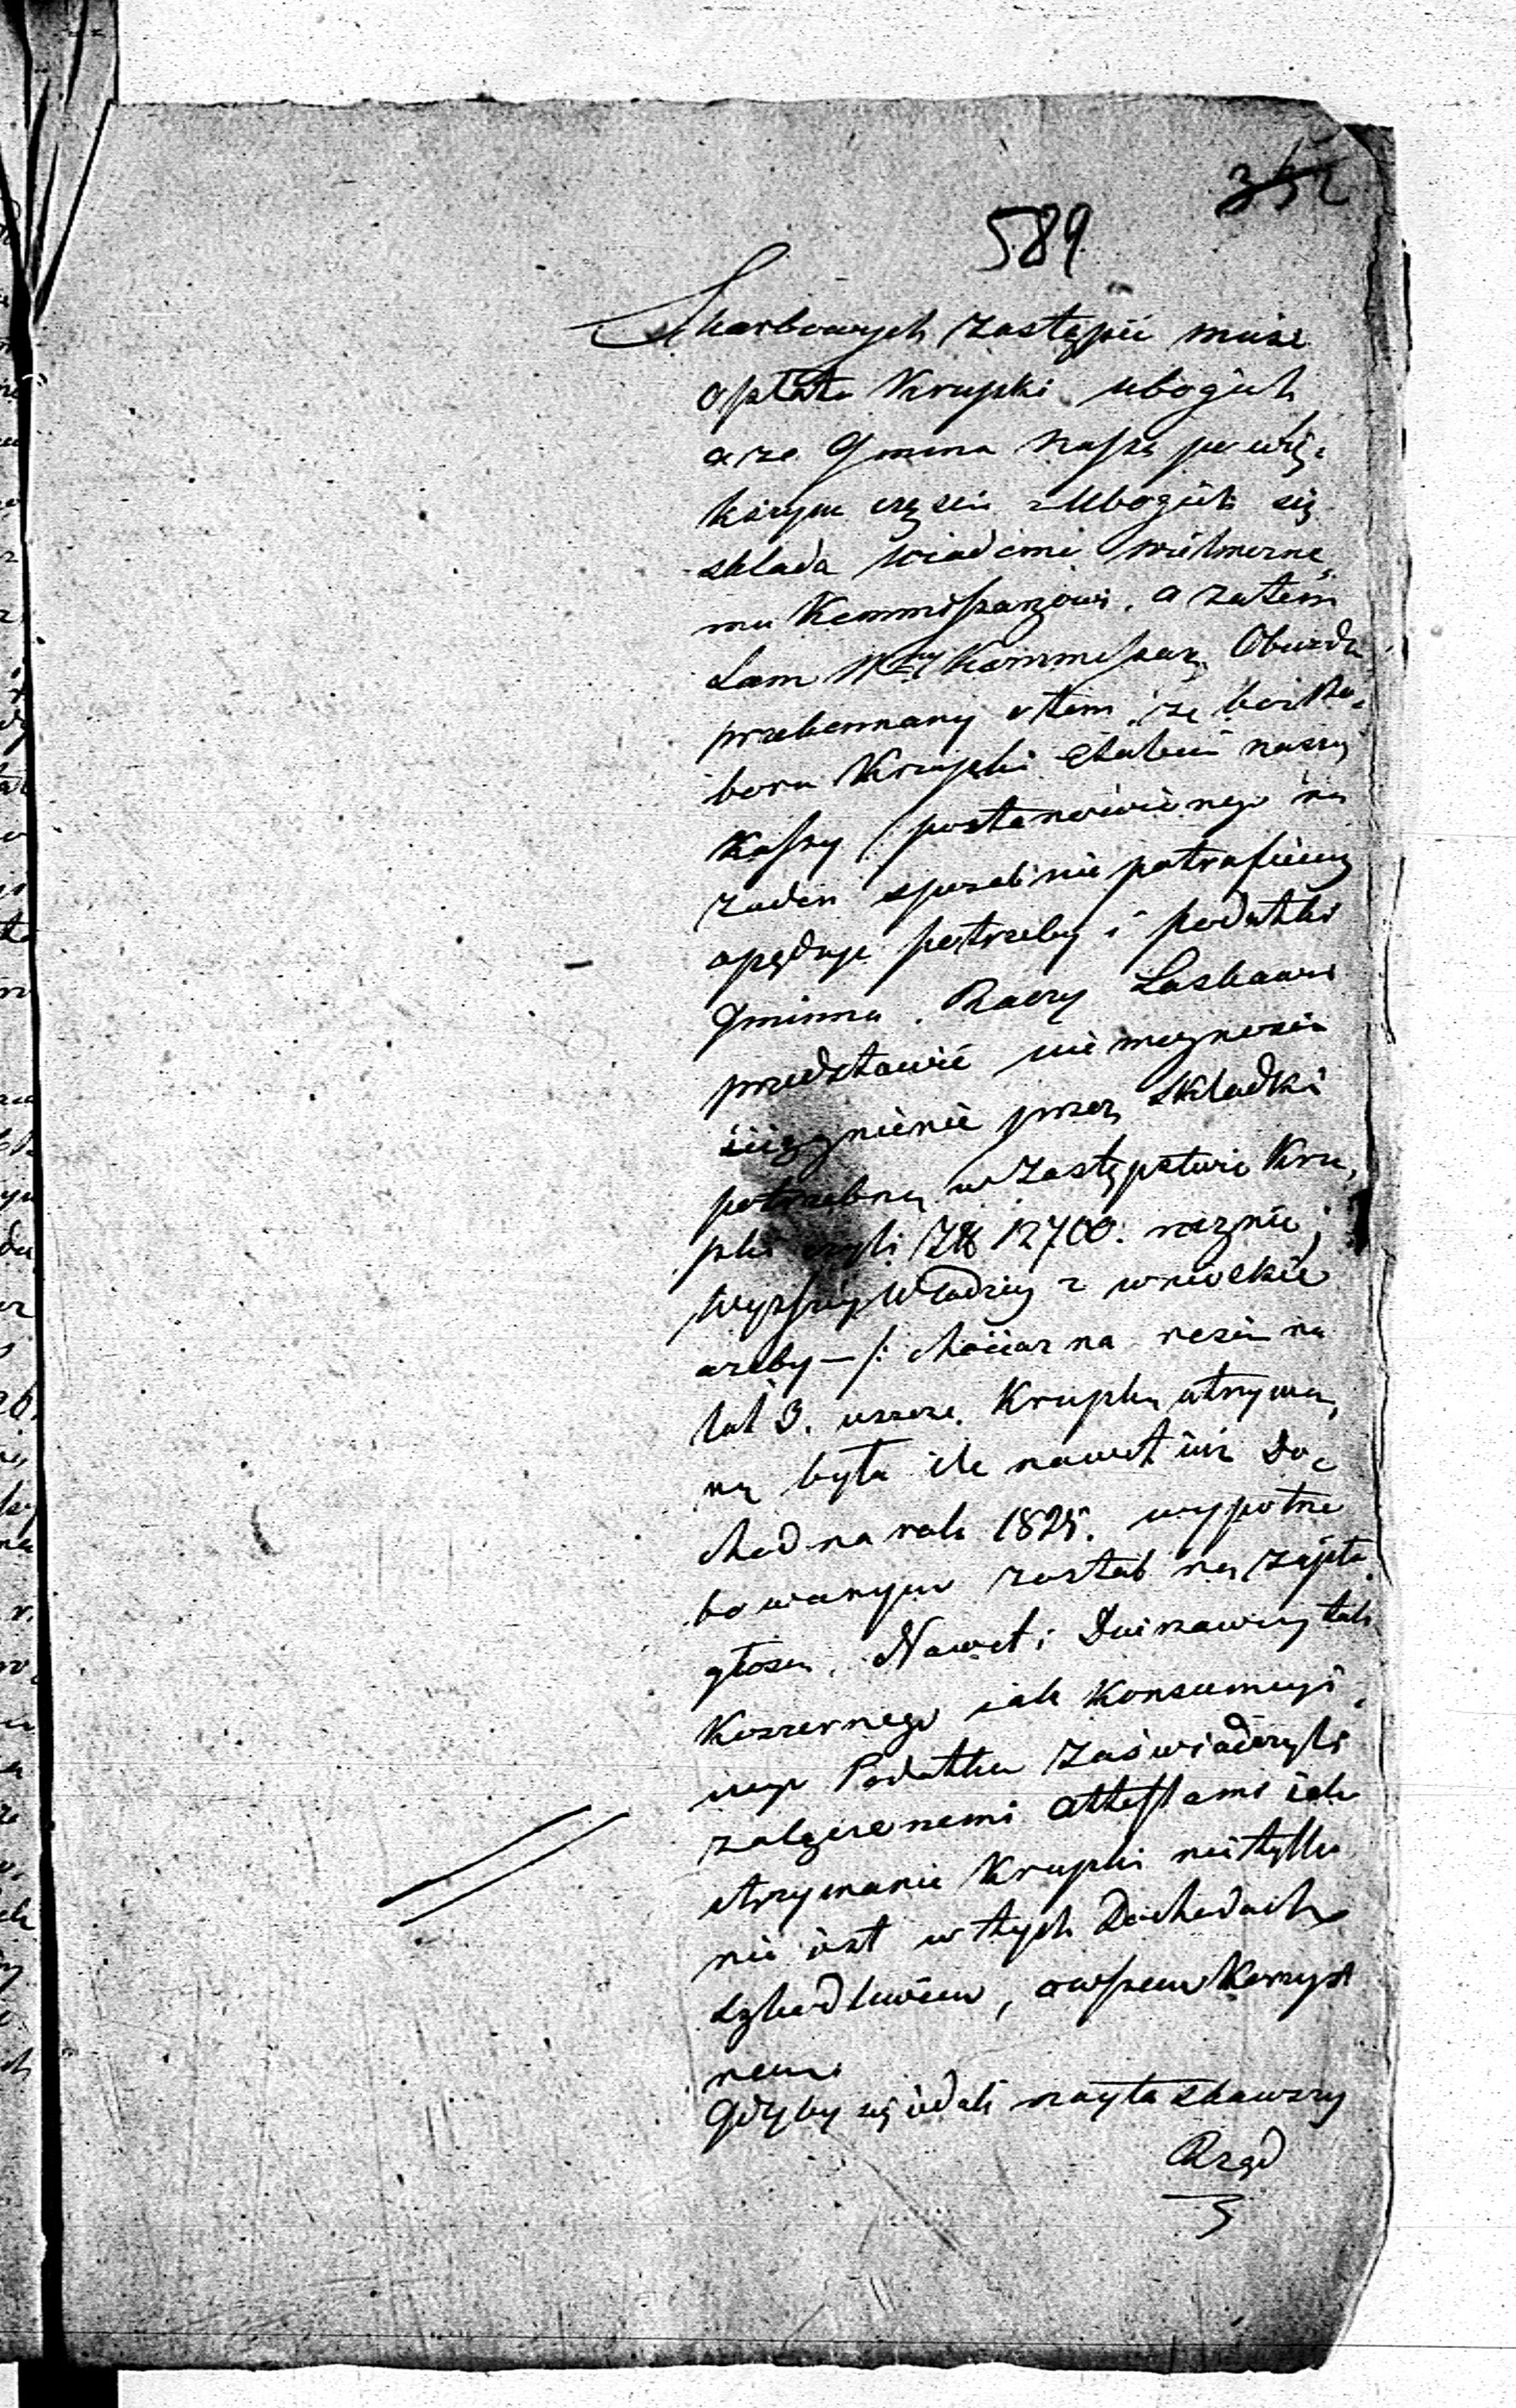 352
589
Skarbowych zastąpić musi
opłata Krupki ubogich
a że Gmina nasza po wię¸
kszym części z Ubogich się
składa wiadomé wielmożne¸
mu Kommissarzowi, a zatem
sam Wny Kommissarz Obwodu
przekonany o tem, że bez Po¸
boru Krupki Etatem naszy
Kassy postanowionego na
żaden sposób nie potrafiemy
opędzić potrzeby i podatki
Gminne. Raczy Łaskawie
przedstawić niemożność
ściągnienie przez składki
potrzebną w zastępstwie Kru¸
pki czyli Zł 12700. rocznie;
Wyższey Władzy z wnioskie
ażeby —/: chociaż na resztę
lat 3. jeszcze Krupka utrzyma¸
ną była ile nawet iuż Do¸
chod na rok 1825. wypotrze
bowanym został na
Nawet i Dzierżawcy tak
Koszernego iak Konsumcyi¸
nego Podatku zaświadczyli
załączonemi attestami iak
utrzymanie Krupki nie tylko
nie iest w tych Dochodach
szkodliwém, owszem Korzyst
nem.
Gdyby się iednak
Rząd